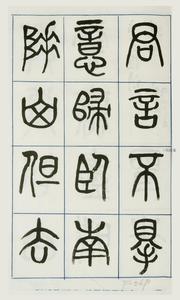 君言不得
意歸臥南
陲山但去